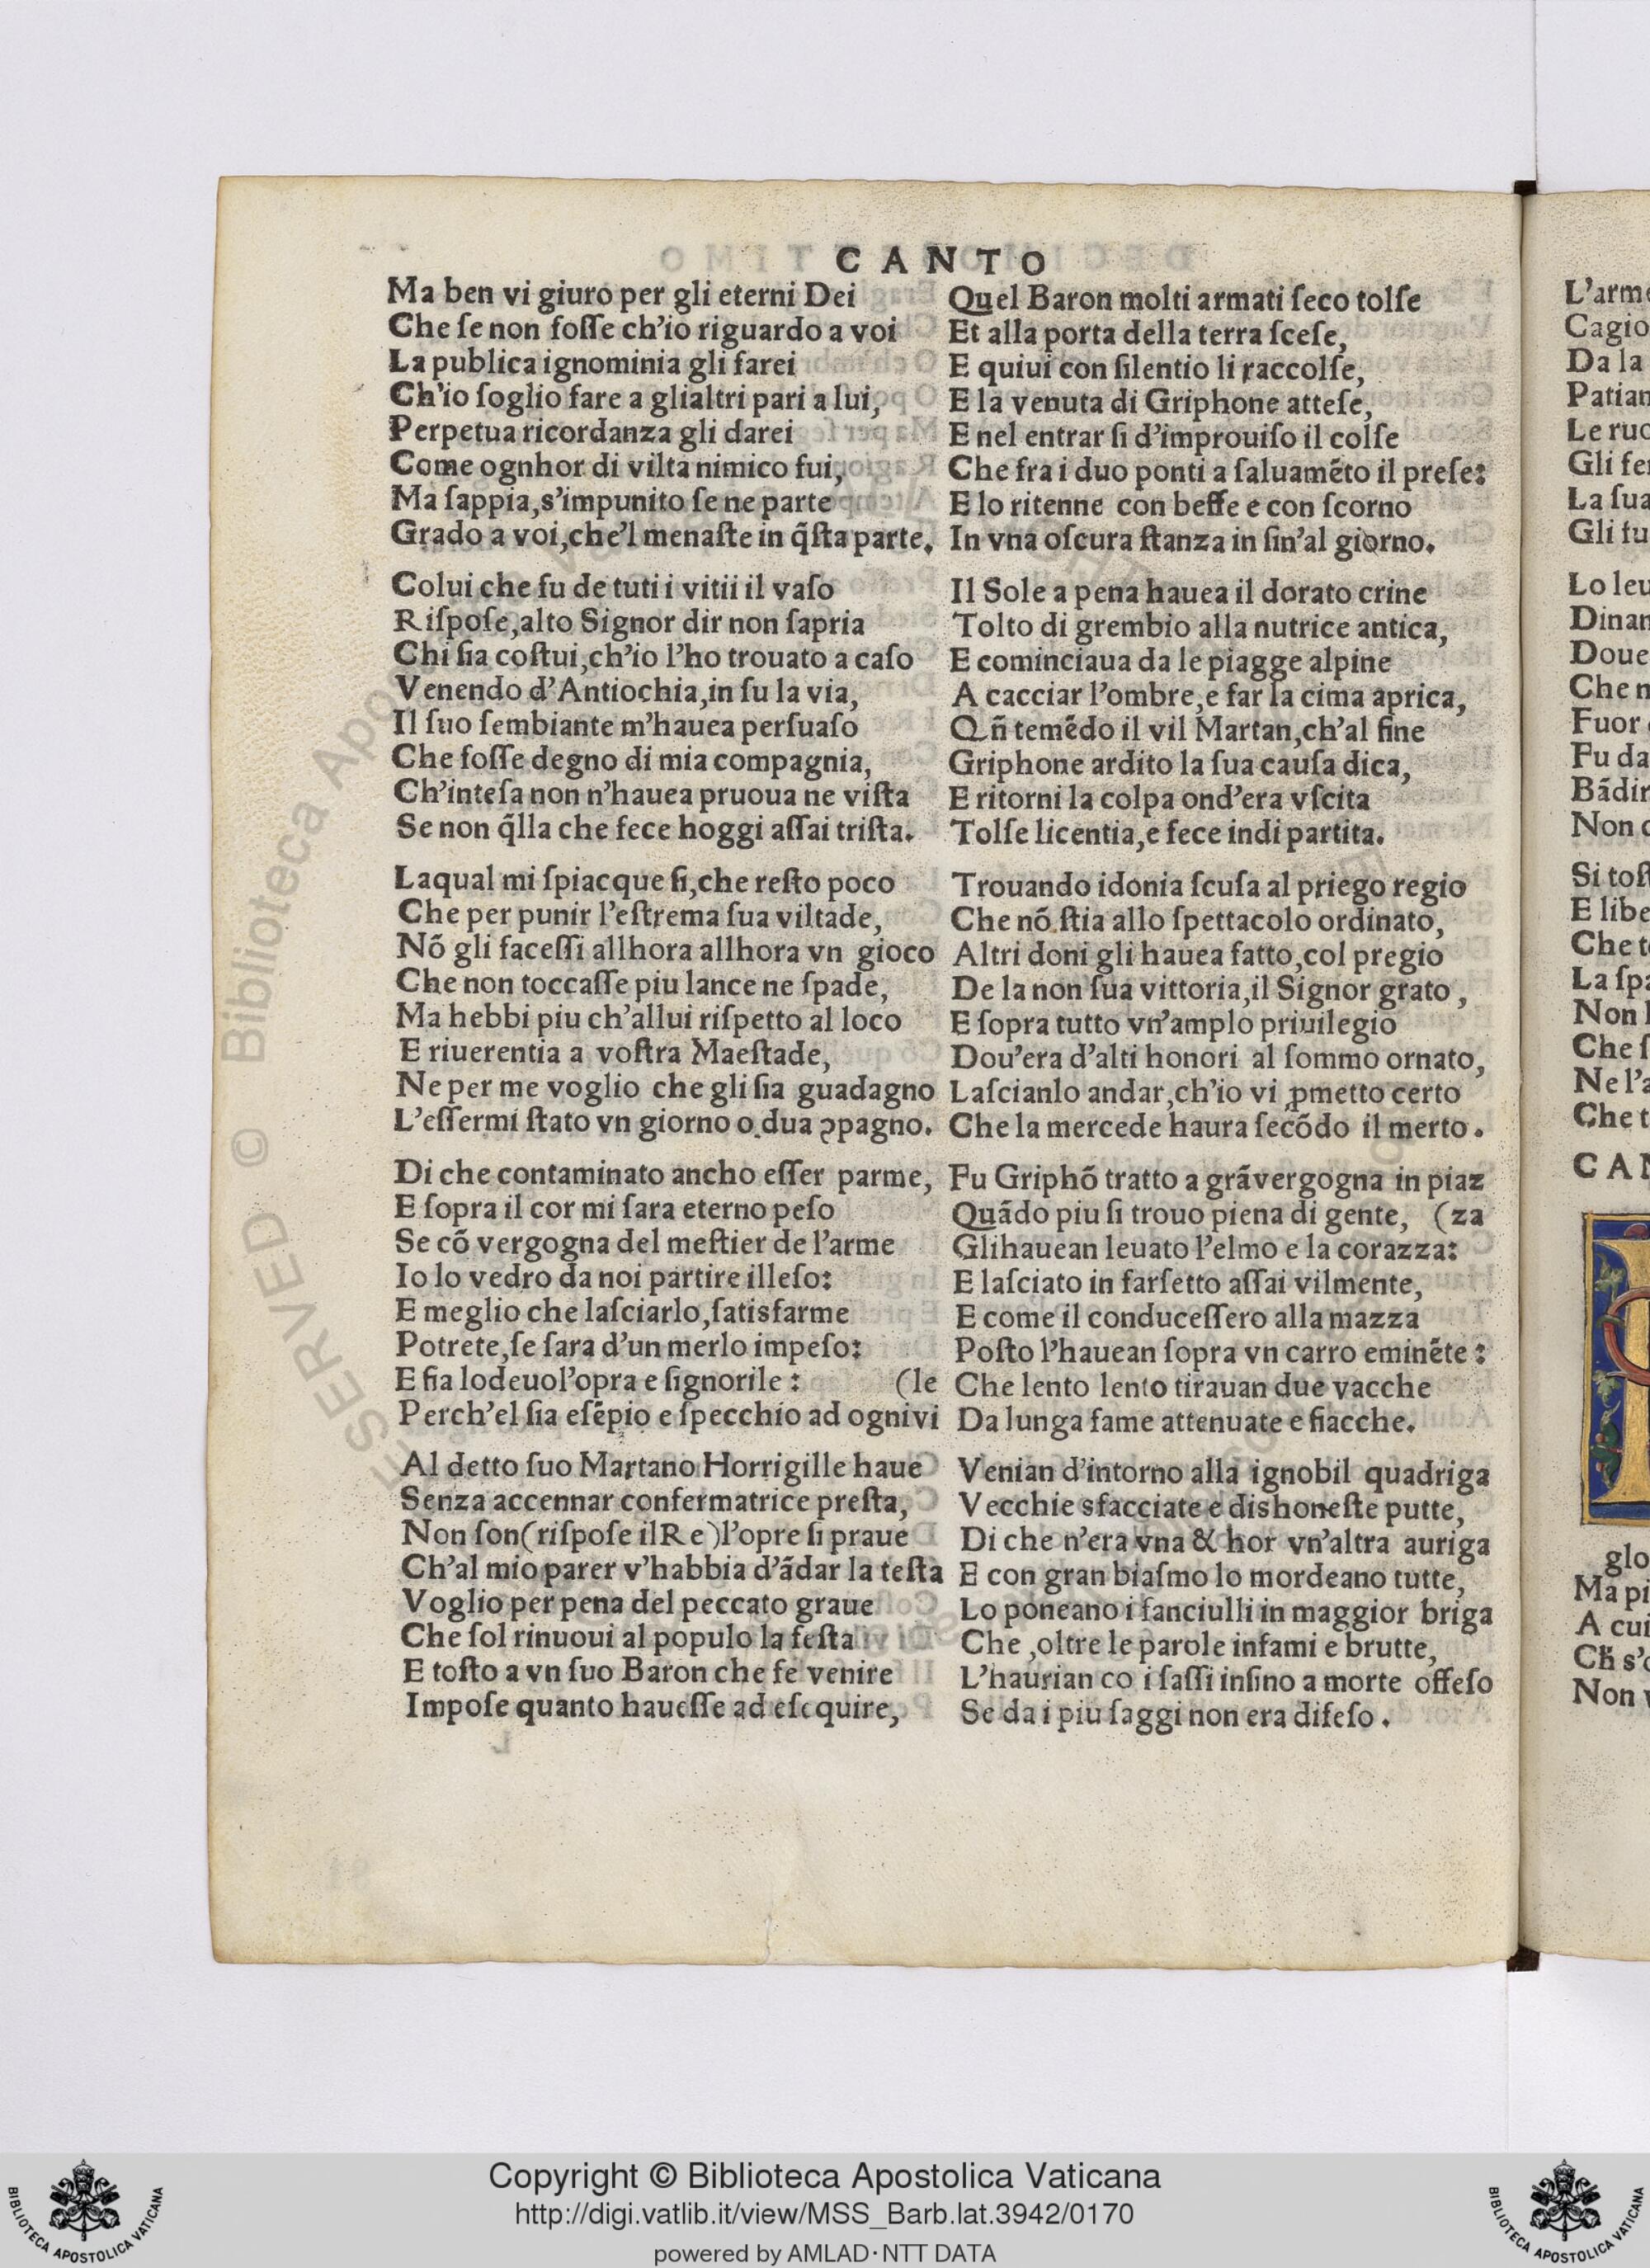 CANTO
Ma ben vi giuro per gli eterni Dei
Che ſe non foſſe ch'io riguardo a voi
La publica ignominia gli farei
Ch'io ſoglio fare a glialtri pari a lui,
Perpetua ricordanza gli darei
Come ognhor di vilta nimico fui,
Ma ſappia,s'impunito ſe ne parte
Grado a voi,che'l menaſte in q̃ſta parte.
Colui che fu de tuti i vitii il vaſo
Riſpoſe,alto Signor dir non ſapria
Chi ſia coſtui,ch'io l'ho trouato a caſo
Venendo d'Antiochia,in ſu la via,
Il ſuo ſembiante m'hauea perſuaſo
Che foſſe degno di mia compagnia,
Ch'inteſa non n'hauea pruoua ne viſta
Se non q̃lla che fece hoggi aſſai triſta.
Laqual mi ſpiacque ſi,che reſto poco
Che per punir l'eſtrema ſua viltade,
Nõ gli faceſſi allhora allhora vn gioco
Che non toccaſſe piu lance ne ſpade,
Ma hebbi piu ch'allui riſpetto al loco
E riuerentia a voſtra Maeſtade,
Ne per me voglio che gli ſia guadagno
L'eſſermi ſtato vn giorno o dua ꝯpagno.
Di che contaminato ancho eſſer parme,
E ſopra il cor mi ſara eterno peſo
Se cõ vergogna del meſtier de l'arme
Io lo vedro da noi partire illeſo:
E meglio che laſciarlo,ſatisfarme
Potrete,ſe ſara d'un merlo impeſo:
E fia lodeuol'opra e ſignorile : (le
Perch'el ſia eſẽpio e ſpecchio ad ognivi
Al detto ſuo Martano Horrigille haue
Senza accennar confermatrice preſta,
Non ſon(riſpoſe ilRe)l'opre ſi praue
Ch'al mio parer v'habbia d'ãdar la teſta
Voglio per pena del peccato graue
Che ſol rinuoui al populo la feſta
E toſto a vn ſuo Baron che fe venire
Impoſe quanto haueſſe ad eſequire,
Quel Baron molti armati ſeco tolſe
Et alla porta della terra ſceſe,
E quiui con ſilentio li raccolſe,
E la venuta di Griphone atteſe,
E nel entrar ſi d'improuiſo il colſe
Che fra i duo ponti a ſaluamẽto il preſe:
E lo ritenne con beffe e con ſcorno
In vna oſcura ſtanza in ſin'al giorno.
Il Sole a pena hauea il dorato crine
Tolto di grembio alla nutrice antica,
E cominciaua da le piagge alpine
A cacciar l'ombre,e far la cima aprica,
Qñ temẽdo il vil Martan,ch'al fine
Griphone ardito la ſua cauſa dica,
E ritorni la colpa ond'era vſcita
Tolſe licentia,e fece indi partita.
Trouando idonia ſcuſa al priego regio
Che nõ ſtia allo ſpettacolo ordinato,
Altri doni gli hauea fatto,col pregio
De la non ſua vittoria,il Signor grato,
E ſopra tutto vn'amplo priuilegio
Dou'era d'alti honori al ſommo ornato,
Laſcianlo andar,ch'io vi ꝓmetto certo
Che la mercede haura ſecõdo il merto.
Fu Griphõ tratto a grãvergogna in piaz
Quãdo piu ſi trouo piena di gente, (za
Glihauean leuato l'elmo e la corazza:
E laſciato in farſetto aſſai vilmente,
E come il conduceſſero alla mazza
Poſto l'hauean ſopra vn carro eminẽte :
Che lento lento tirauan due vacche
Da lunga fame attenuate e fiacche.
Venian d'intorno alla ignobil quadriga
Vecchie sfacciate e dishoneſte putte,
Di che n'era vna & hor vn'altra auriga
E con gran biaſmo lo mordeano tutte,
Lo poneano i fanciulli in maggior briga
Che ,oltre le parole infami e brutte,
L'haurian co i ſaſſi inſino a morte offeſo
Se da i piu ſaggi non era difeſo .
L'arm
Cagio
Da la
Patian
Le ruo
Gli fe
La ſua
Gli fu
Lo leu
Dinan
Doue
Che n
Fuor
Fu da
Bãdir
Non
Si toſ
E libe
Che t
La ſpa
Non
Che ſ
Ne l'a
Che t
CAN
glo
Ma pi
A cui
s'
Non
© Biblioteca Apos
ESERVED
Copyright © Biblioteca Apostolica Vaticana
http://digi.vatlib.it/view/MSS_Barb.lat.3942/0170
powered by AMLAD·NTT DATA
BIBLIOTECA APOSTOLICA VATICANA
BIBLIOTECA APOSTOLICA VATICANA